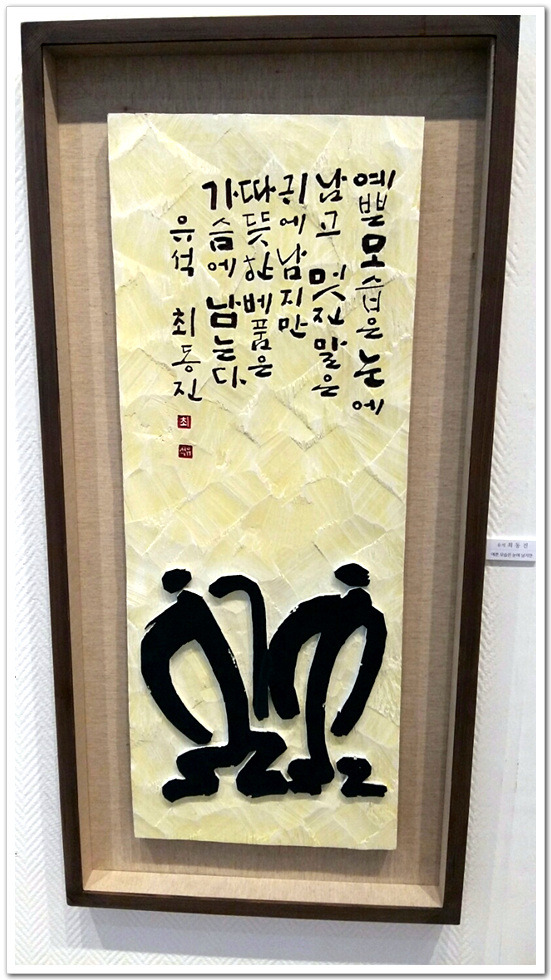 예쁜모습은 눈에
남고 멋진 말은
귀에남지만
따뜻한베품은
가슴에 남는다
유석 최동진
최
유석
유석 최 동 진